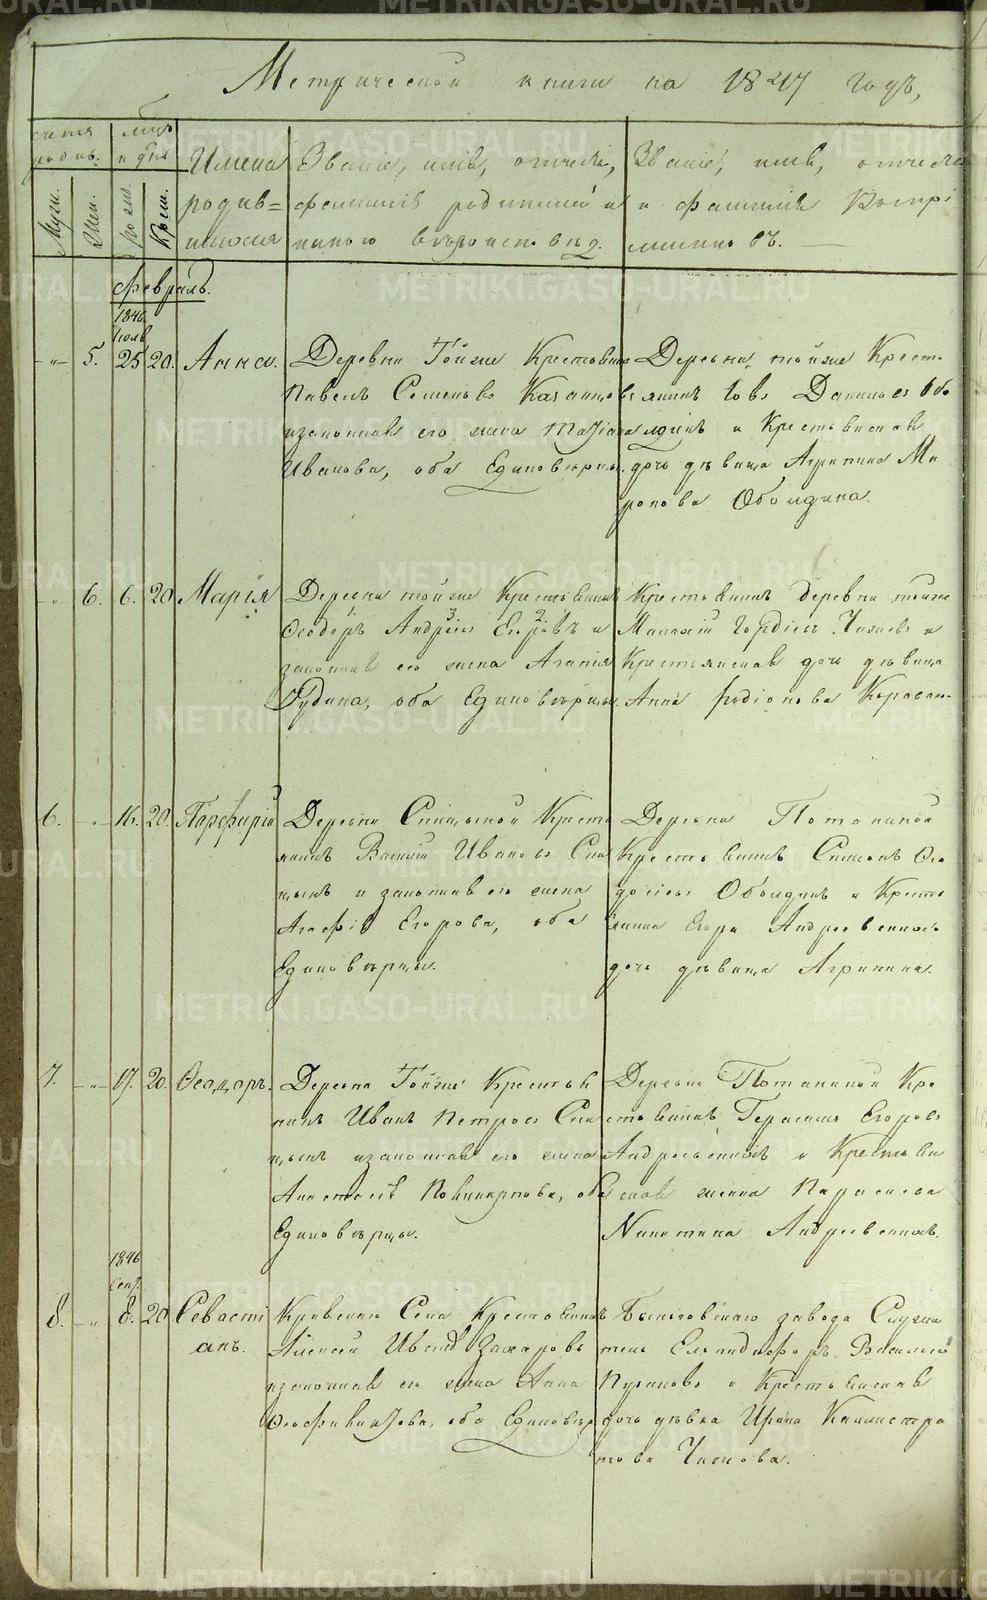 METRIKI.GASO-URAL.RU
Метрической книги на 1847 годъ,
счетъ родив.
Муж.
Жен.
м͠цъ и дни
рожд.
Крещ.
Имена родив=шихся
Званіе, имя, отчество, фамилія родителей и какого вѣроисповѣд.
Званіе, имя, отчество и фамилія Воспріемниковъ.
Февраль.
1846
Іюля
" 5. 25 20. Анна.
Деревни Тойже Крестьянинъ
Павелъ Семеновъ Казанцовъ
и законная его жена
Иванова, оба Единовѣрцы.
Деревни тойже Крестьянинъ Іовъ Даниловъ Оболдинъ и Крестьянская
дочь дѣвица Агрипина Миронова Оболдина.
" 6. 6. 20 Марія
Деревни тойже Крестьянинъ
Ѳеодоръ Андреевъ Егоровъ и
законная его жена Агафія
оба Единовѣрцы.
Крестьянинъ деревни тойже
Гордѣевъ и
Крестьянская дочь дѣвица
Анна Родіонова
6. " 16. 20. Парфирій
Деревни Спицыной Крестьянинъ Василій Ивановъ Спицынъ и законная его жена
Агафія Егорова, оба
Единовѣрцы.
Деревни Потаниной
Крестьянинъ Симеонъ Ѳеодосіевъ Оболдинъ и Крестьянина Егора Андреевскихъ
дочь дѣвица Агрипина.
7. " 17. 20. Ѳеодоръ.
Деревни Тойже Крестьянинъ Иванъ Петровъ Спицынъ и законная его жена
Анастасія Поликарпова, оба
Единовѣрцы.
Деревни Потаниной Крестьянинъ Герасимъ Егоровъ
Андреевскихъ и Крестьянская жена Параскева
Никитина Андреевскихъ.
1846
Сент.
8. " 8. 20 Севастіанъ.
Села Крестьянинъ
Алексѣй Захаровъ
и законная его жена Анна
оба Единовѣр
завода Служитель Елпидифоръ Васильевъ
и Крестьянская
дочь дѣвка Ирина Каллистратова